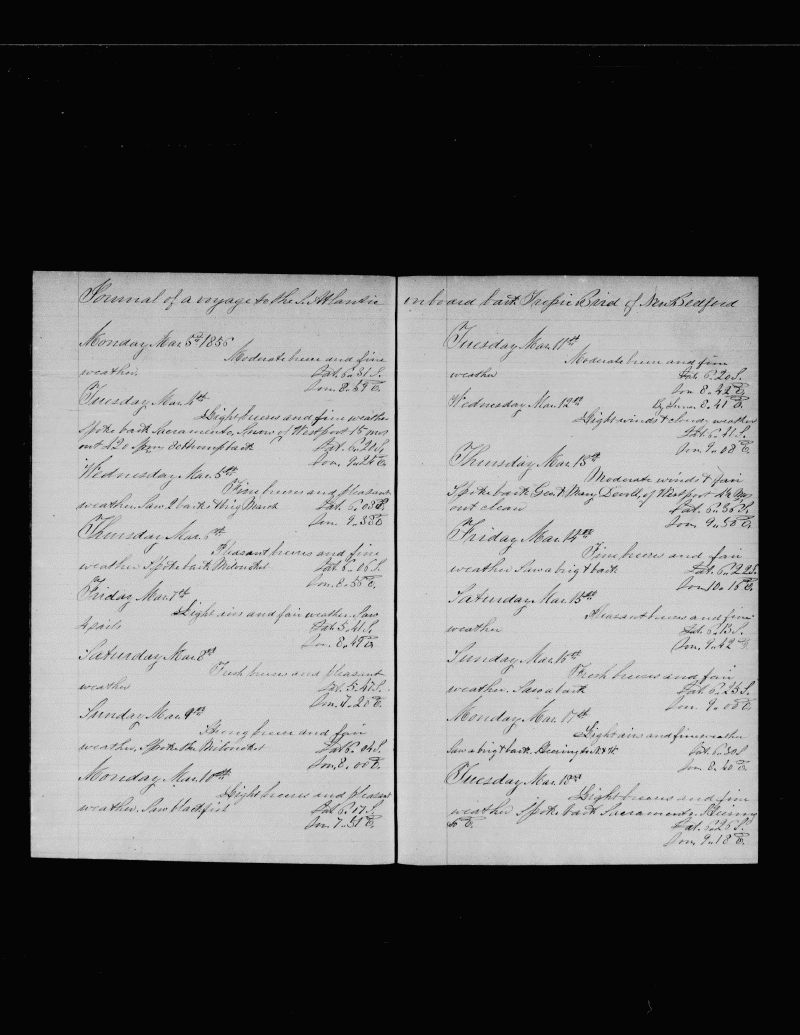 Journal of a voyage to the S. Atlantic
Monday Mar. 3rd 1856
Moderate breeze and fine
weather. Lat. 6.31 S.
Lon. 8.59 E.
Tuesday Mar. 4th
Light breezes and fine weather
Spoke bark Sacramento, of Westport 15 mos
out 420 Spm 30 humpback Lat. 6.20 S.
Lon. 9.25 E.
Wednesday Mar. 5th
Fine breezes and pleasant
weather. Saw 2 barks & brig March Lat. 6.03 S.
Lon. 9.33 E.
Thursday Mar. 6th
Pleasant breezes and fine
weather. Spoke bark Lat. 6.06 S.
Lon. 8.55 E.
Friday Mar. 7th
Light airs and fair weather. Saw
4 sails Lat. 5.41 S.
Lon. 8.49 E.
Saturday Mar. 8th
Fresh breezes and pleasant
weather Lat. 5.47 S.
Lon. 7.20 E.
Sunday Mar. 9th
Strong breeze and fair
weather. Spoke the Lat. 6.04 S.
Lon. 8.00 E.
Monday Mar. 10th
Light breezes and pleasant
weather. Saw blackfish Lat. 6.17 S.
Lon. 7.51 E.
on board bark Tropic Bird of New Bedford
Tuesday Mar. 11th
Moderate breeze and fine
weather Lat. 6.20 S.
Lon. 8.42 E.
Wednesday Mar. 12th By 8.41 E.
Light winds & cloudy weather
Lat. 6.41 S.
Lon. 9.08 E.
Thursday Mar. 13th
Moderate winds & fair
Spoke bark Govt. of Westport mos
out clean Lat. 6.36 S.
Lon. 9.56 E.
Friday Mar. 14th
Fine breeze and fair
weather Saw a brig & bark Lat. 6.22 S.
Lon. 10.16 E.
Saturday Mar. 15th
Pleasant breezes and fine
weather Lat. 6.13 S.
Lon. 9.42 E.
Sunday Mar. 16th
Fresh breezes and fair
weather. Saw a bark Lat. 6.25 S.
Lon. 9.05 E.
Monday Mar. 17th
Light airs and fine weather
Saw a brig & bark. Steering to N & W Lat. 6.30 S.
Lon. 8.40 E.
Tuesday Mar. 18th
Light breezes and fine
weather Spoke bark Sacramento. Steering
to E. Lat. 6.26 S.
Lon. 9.18 E.